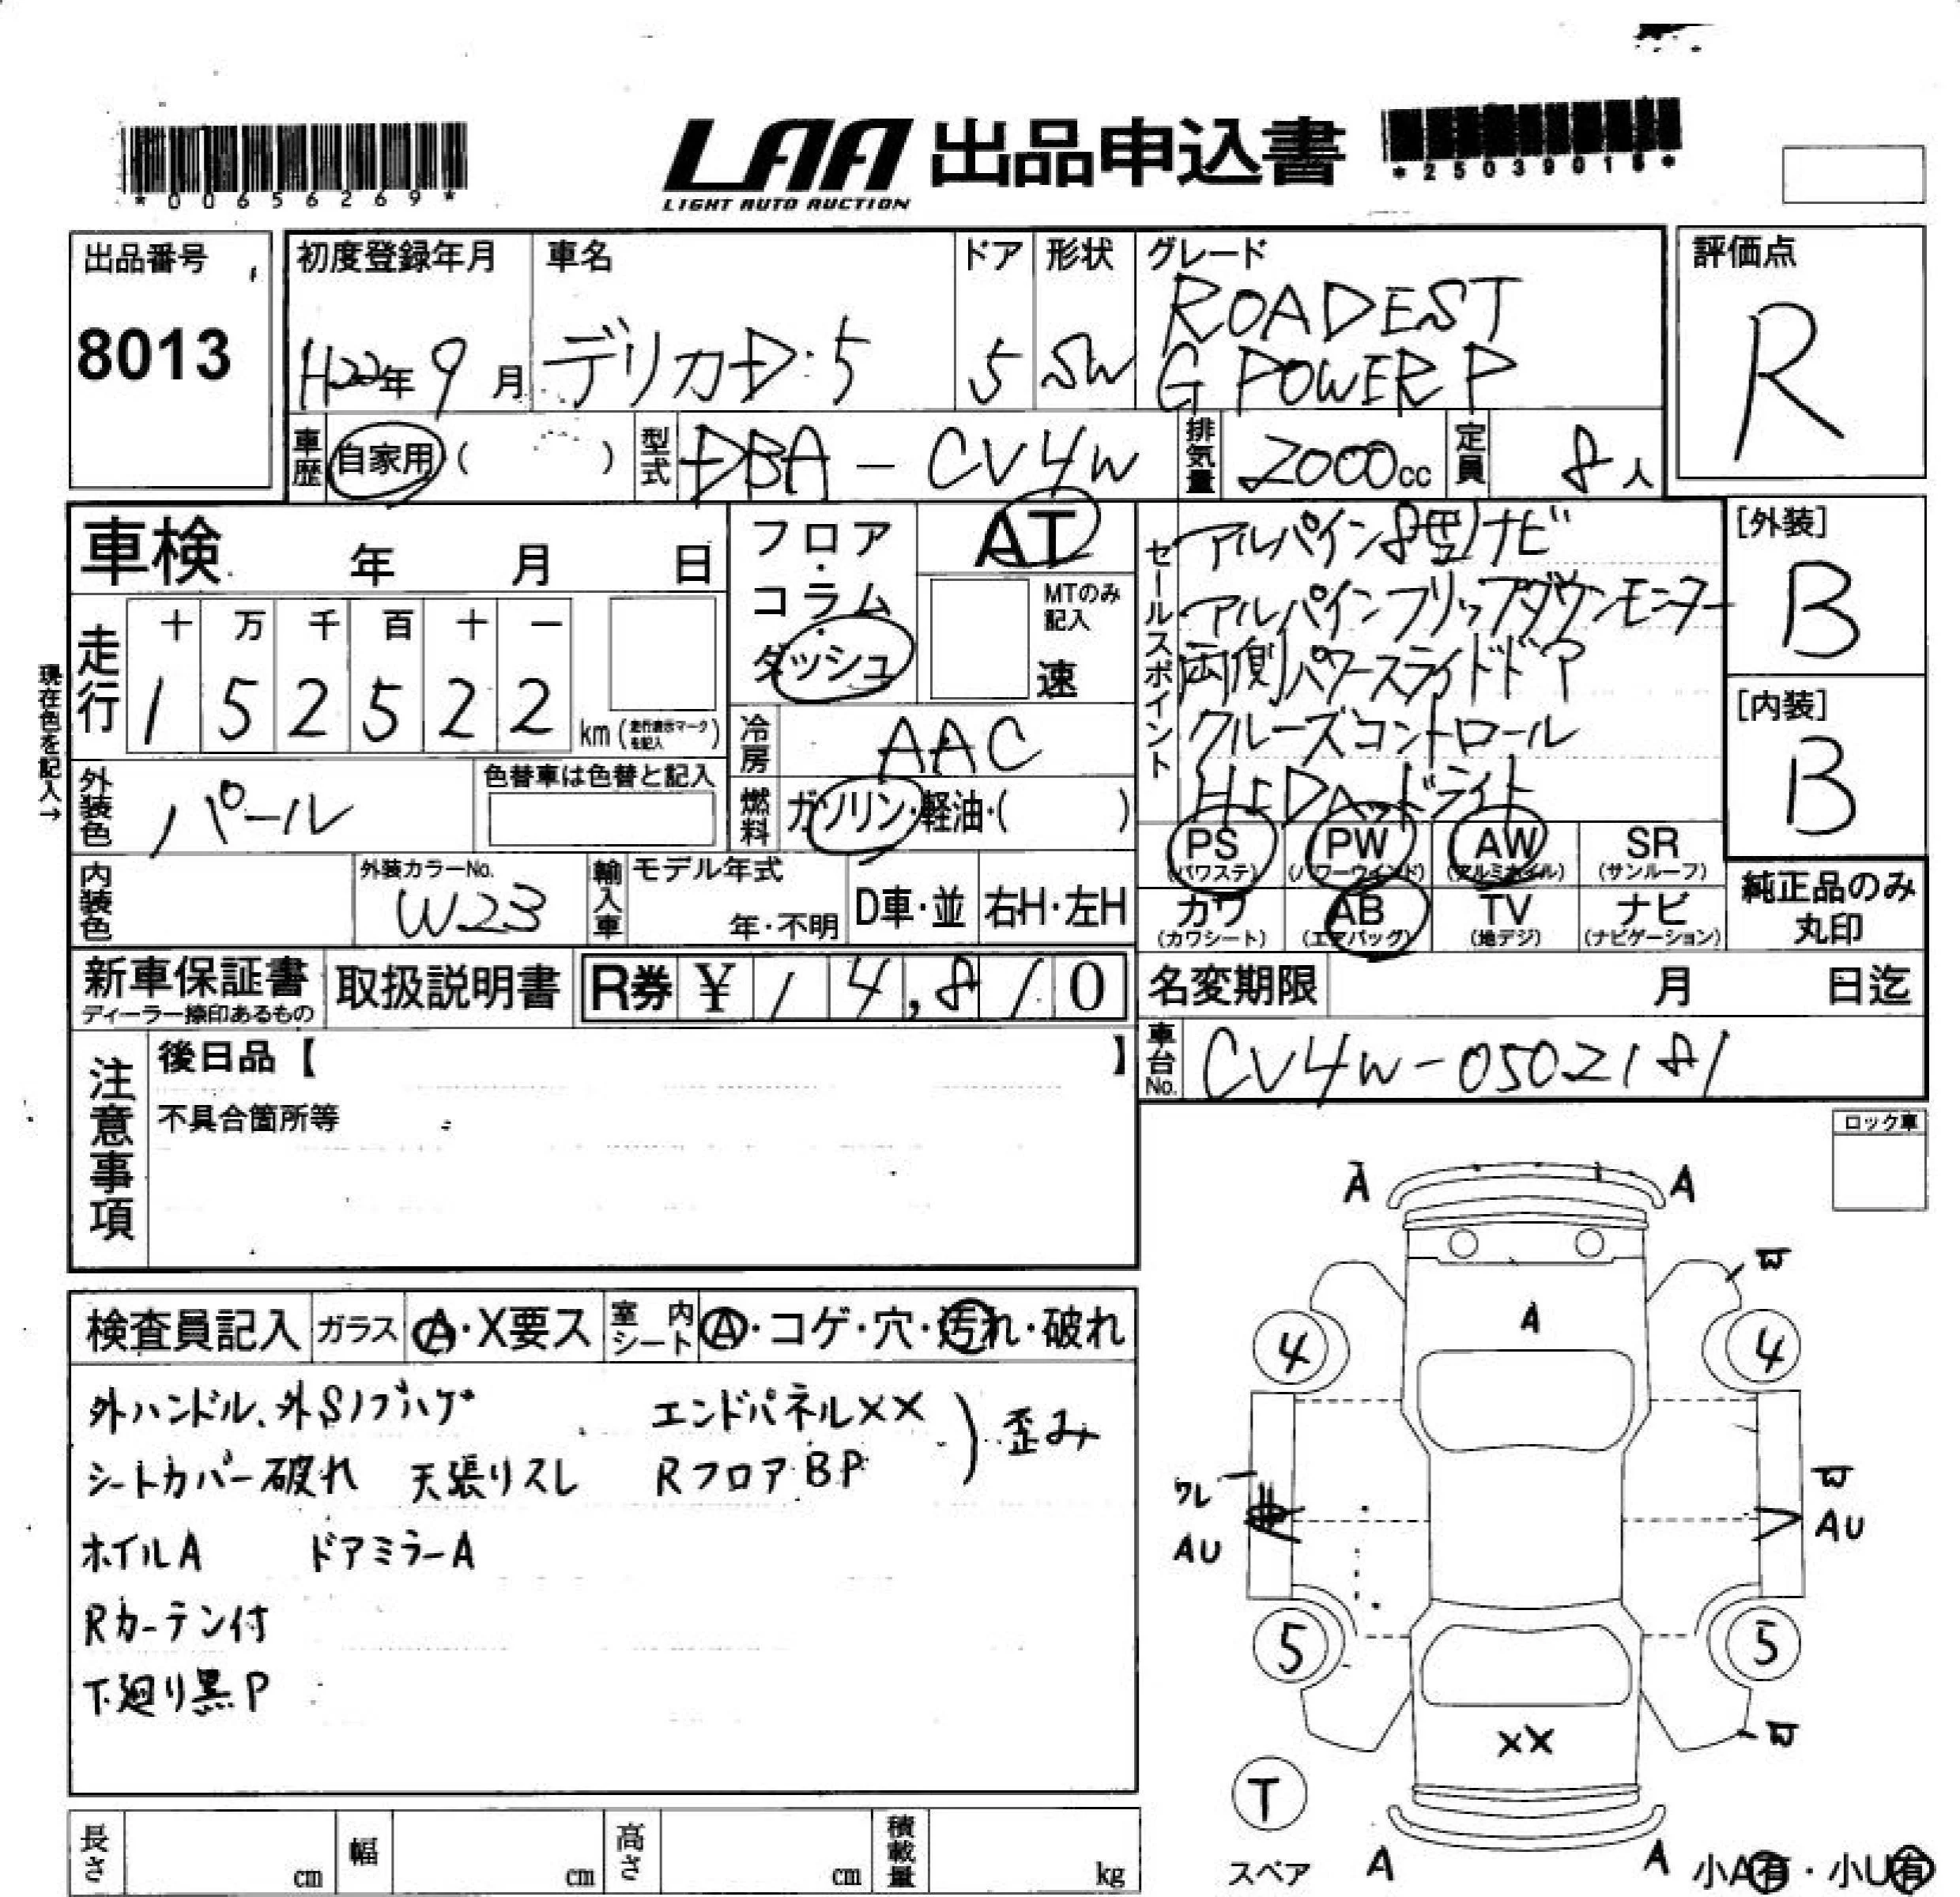 *00656269*
LAA 出品申込書
LIGHT AUTO AUCTION
*25039015*
出品番号
8013
初度登録年月
H22年9月
車名
デリカD:5
ドア
5
形状
SW
グレード
ROADEST
G POWER P
評価点
R
車歴 自家用 ( )
型式 DBA-CV4W
排気量 2000cc
定員 8人
車検 年 月 日
フロア・
コラム・
ダッシュ
AT
MTのみ
記入
速
走行
十 万 千 百 十 一
1 5 2 5 2 2 km (走行表示マークを記入)
現在色を記入→
冷房 AAC
外装色 パール
色替車は色替と記入
燃料 ガソリン・軽油・( )
内装色
外装カラーNo.
W23
輸入車 モデル年式
年・不明
D車・並
右H・左H
セールスポイント
アルパイン8型ナビ
アルパインフリップダウンモニター
両側パワースライドドア
クルーズコントロール
HIDヘッドライト
[外装]
B
[内装]
B
PS (パワステ)
PW (パワーウインド)
AW (アルミホイル)
SR (サンルーフ)
カワ (カワシート)
AB (エアバッグ)
TV (地デジ)
ナビ (ナビゲーション)
純正品のみ
丸印
新車保証書
ディーラー捺印あるもの
取扱説明書
R券 ¥14,810
名変期限 月 日迄
車台No. CV4W-0502181
注意事項
後日品【 】
不具合箇所等
ロック車
検査員記入
ガラス A・X要ス
室内シート A・コゲ・穴・汚れ・破れ
外ハンドル、外Sノブハゲ エンドパネルXX
シートカバー破れ 天張リスレ RフロアBP ) 歪み
ホイルA ドアミラーA
Rカーテン付
下廻り黒P
A A
W
4 A 4
ワレ W
AU AU
5 5
XX W
T
スペア A A
小A有・小U有
長さ cm
幅 cm
高さ cm
積載量 kg